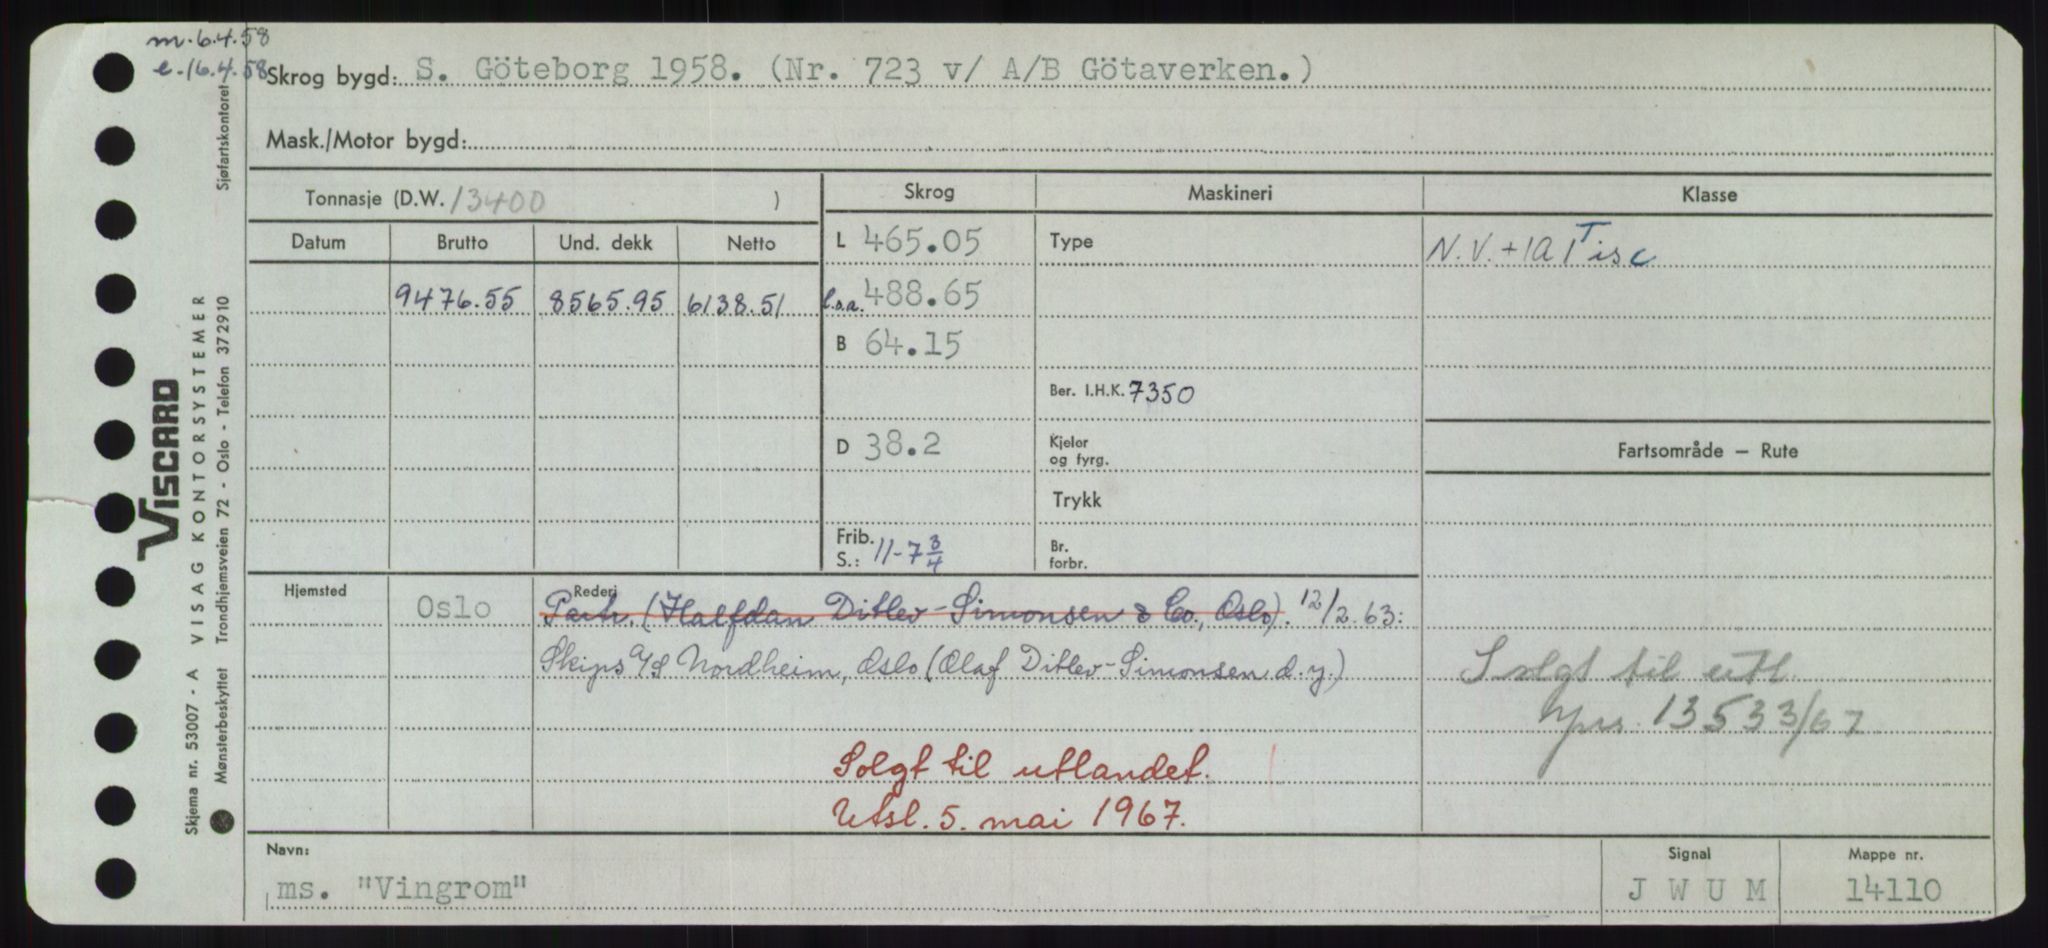 m. 6.4.58
e. 16.4.58
Skrog bygd: S. Göteborg 1958. (Nr. 723 v/ A/B Götaverken.)
Mask./Motor bygd:
Tonnasje (D.W. 13400 )
Skrog
Maskineri
Klasse
Datum
Brutto
Und. dekk
Netto
L 465.05
Type
N.V. +1A1 T isc
9476.55
8565.95
6138.51
l.o.a. 488.65
B 64.15
Ber. I.H.K. 7350
D 38.2
Kjeler
og fyrg.
Fartsområde — Rute
Trykk
Frib.
S.: 11-7 3/4
Br.
forbr.
Hjemsted
Oslo
Rederi
Partr. (Halfdan Ditlev-Simonsen & Co., Oslo). 12/2.63:
Skips A/S Nordheim, Oslo (Olaf Ditlev-Simonsen d.y.)
Solgt til utl.
13533/67
Solgt til utlandet.
Utsl. 5. mai 1967.
Navn:
ms. "Vingrom"
Signal
J W U M
Mappe nr.
14110
VISCARD
Skjema nr. 53007 - A VISAG KONTORSYSTEMER
Mønsterbeskyttet Trondhjemsveien 72 - Oslo - Telefon 372910
Sjøfartskontoret